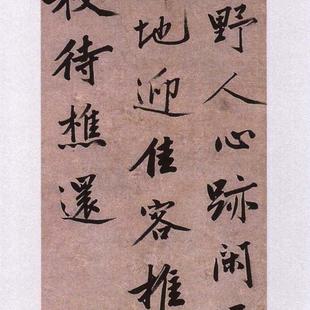 野人心跡闲
地迎佳客推
待樵還